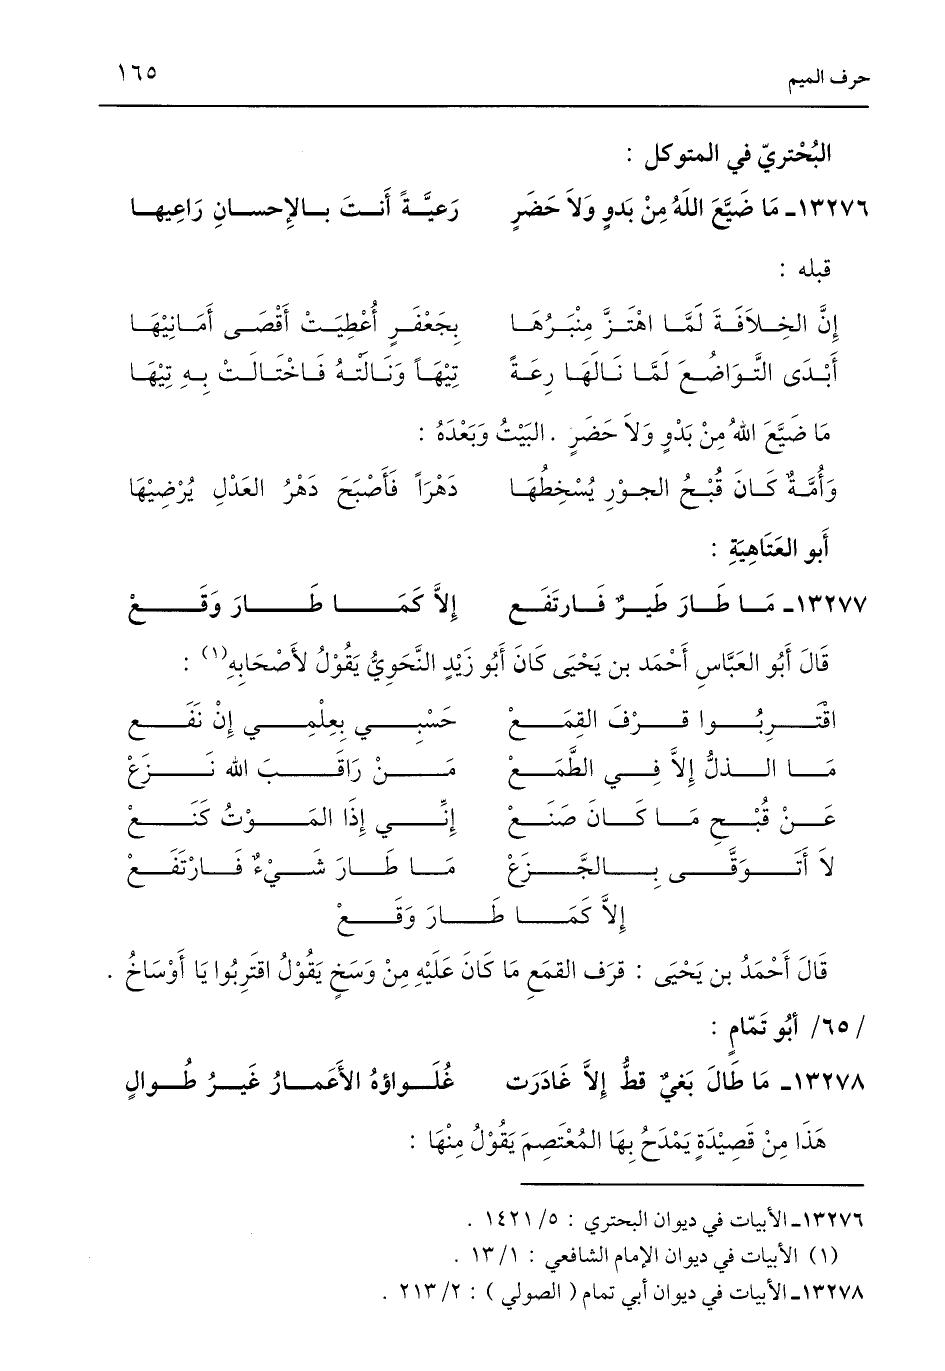 حرف الميم ١٦٥
البُحْتريّ في المتوكل :
١٣٢٧٦ـ مَا ضَيَّعَ اللَهُ مِنْ بَدوٍ وَلاَ حَضَرٍ رَعيَّةً أَنتَ بالإِحسانِ رَاعِيها
قبله :
إِنَّ الخِلاَفَةَ لَمَّا اهْتَزَّ مِنْبَرُهَا بِجَعْفَرٍ أُعْطِيَتْ أَقْصَى أَمَانِيْهَا
أَبْدَى التَّوَاضُعَ لَمَّا نَالَهَا رِعَةً تِيْهَاً وَنَالَتْهُ فَاخْتَالَتْ بِهِ تِيْهَا
مَا ضَيَّعَ اللهُ مِنْ بَدْوٍ وَلاَ حَضَرٍ . البَيْتُ وَبَعْدَهُ :
وَأُمَّةٌ كَانَ قُبْحُ الجوْرِ يُسْخِطُهَا دَهْرَاً فَأَصْبَحَ دَهْرُ العَدْلِ يُرْضِيْهَا
أَبو العَتَاهِيَةِ :
١٣٢٧٧ـ مَا طَارَ طَيرٌ فَارتَفَع إِلاَّ كَمَا طَارَ وَقَعْ
قَالَ أَبُو العَبَّاسِ أَحْمَد بن يَحْيَى كَانَ أَبُو زَيْدٍ النَّحَوِيُّ يَقُوْلُ لأَصْحَابِهِ(١) :
اقْتَرِبُوا قَرْفَ القِمَعْ حَسْبِي بِعِلْمِي إِنْ نَفَع
مَا الذلُّ إِلاَّ فِي الطَّمَعْ مَنْ رَاقَبَ الله نَزَعْ
عَنْ قُبْحِ مَا كَانَ صَنَعْ إِنِّي إِذَا المَوْتُ كَنَعْ
لاَ أَتَوَقَّى بِالجَّزَعْ مَا طَارَ شَيْءٌ فَارْتَفَعْ
إِلاَّ كَمَا طَارَ وَقَعْ
قَالَ أَحْمَدُ بن يَحْيَى : قرَف القمَعِ مَا كَانَ عَلَيْهِ مِنْ وَسَخٍ يَقُوْلُ اقتَرِبُوا يَا أَوْسَاخُ .
/٦٥/ أَبُو تَمّامٍ :
١٣٢٧٨ـ مَا طَالَ بَغيٌ قطُّ إِلاَّ غَادَرَت غُلَواؤهُ الأَعْمارُ غَيرُ طُوالٍ
هَذَا مِنْ قَصِيْدَةٍ يَمْدَحُ بِهَا المُعْتَصِمَ يَقُوْلُ مِنْهَا :
١٣٢٧٦ـ الأبيات في ديوان البحتري : ٥/ ١٤٢١ .
(١) الأبيات في ديوان الإمام الشافعي : ١/ ١٣ .
١٣٢٧٨ـ الأبيات في ديوان أبي تمام ( الصولي ) : ٢/ ٢١٣ .